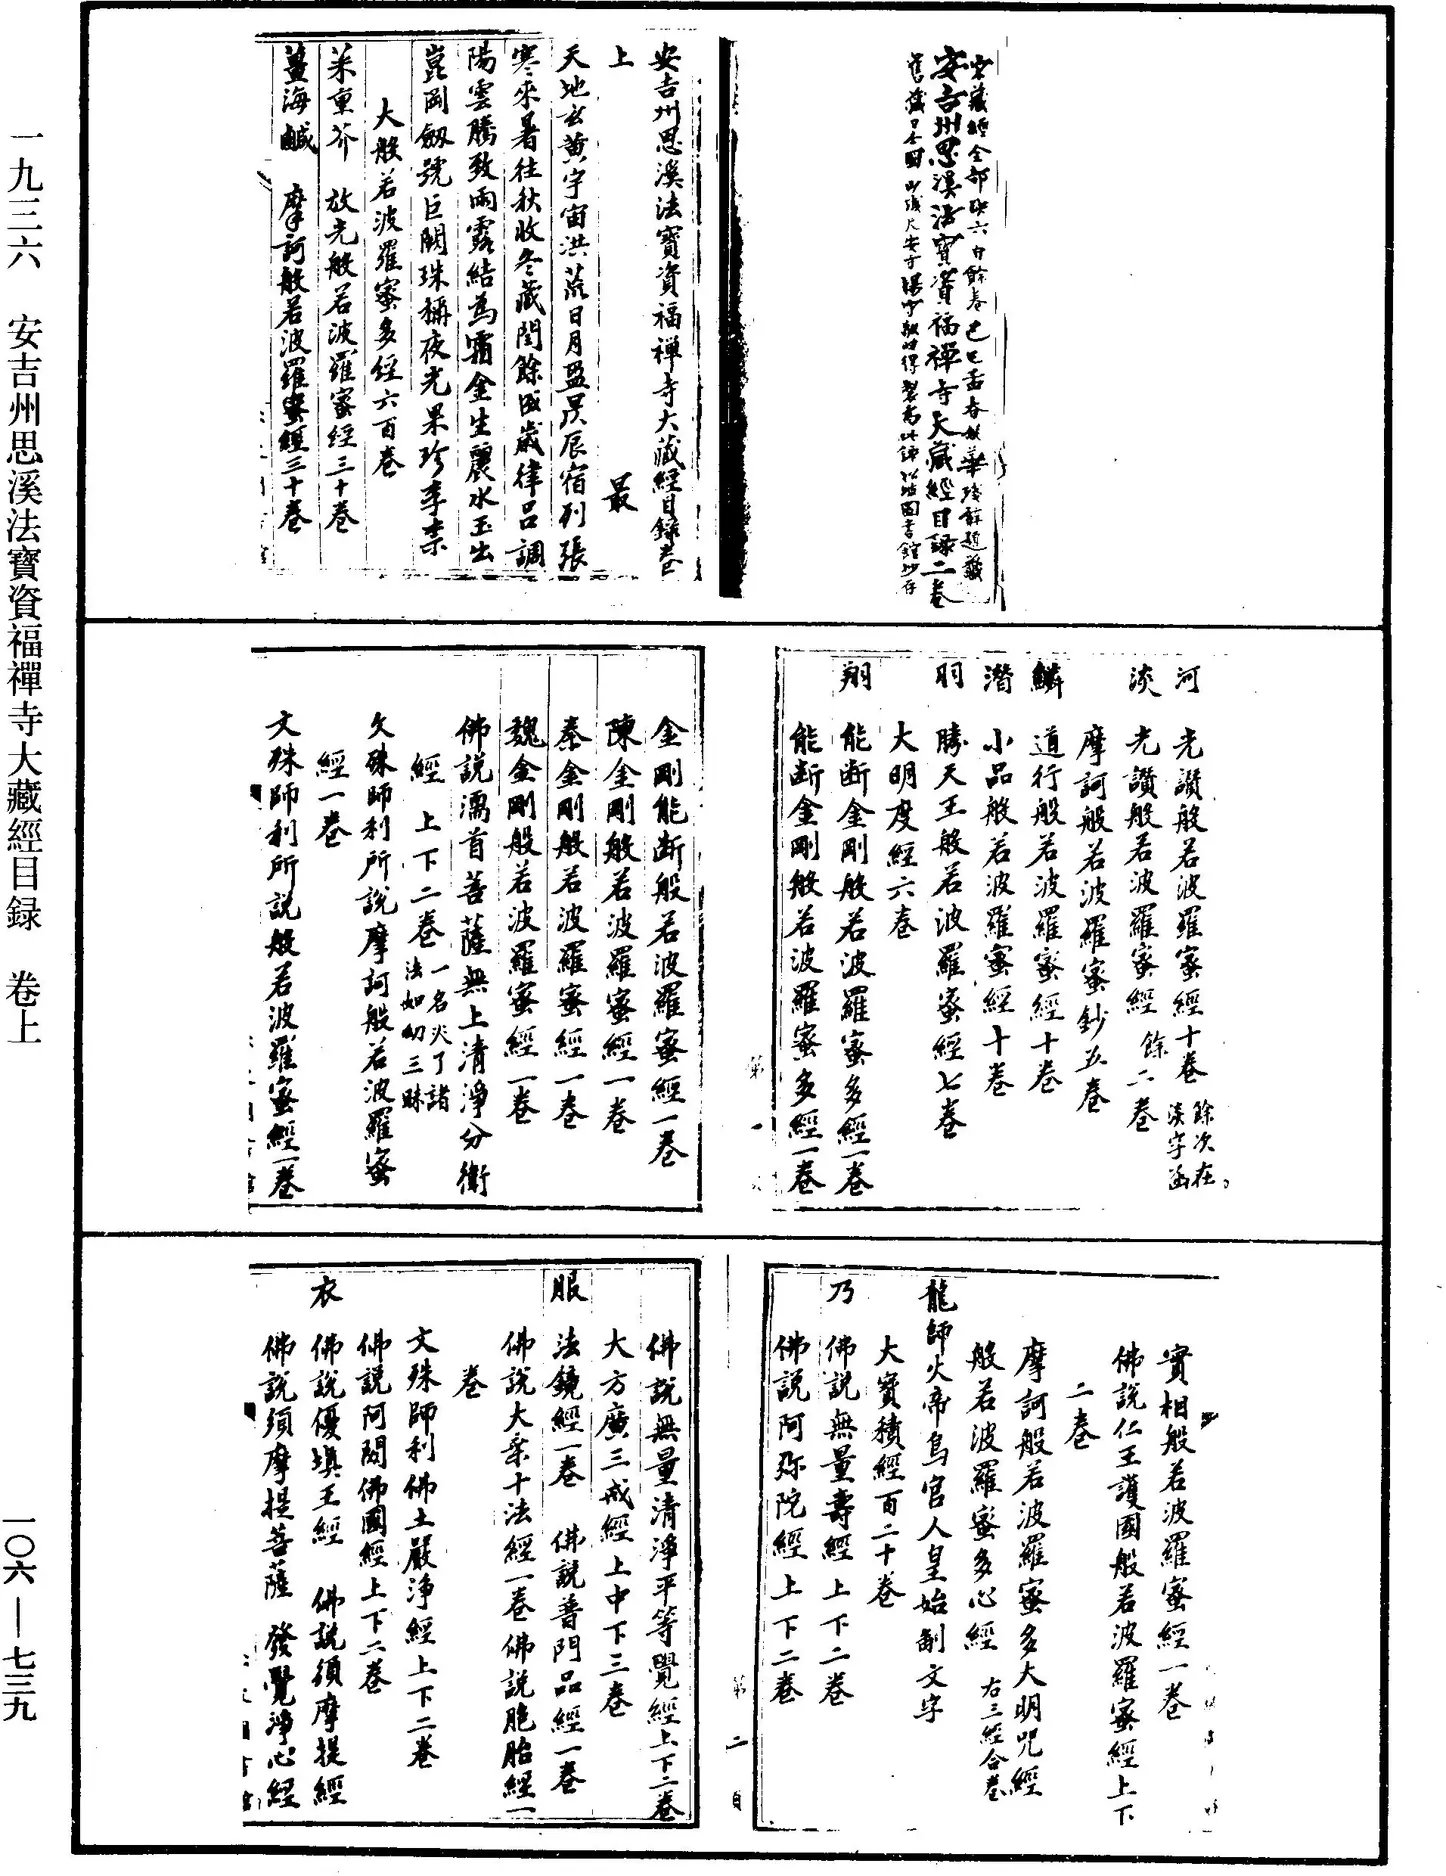 一九三六 安吉州思溪法寶資福禪寺大藏經目録 卷上
一〇六—七三九
安吉州思溪法寶資福禪寺大藏經目録二卷
安吉州思溪法寶資福禪寺大藏經目録卷
上 最
天地玄黄宇宙洪荒日月盈昃辰宿列張
寒來暑往秋收冬藏閏餘成歲律吕調
陽雲騰致雨露結為霜金生麗水玉出
崑岡劒號巨闕珠稱夜光果珍李柰
大般若波羅蜜多經六百卷
菜重芥 放光般若波羅蜜經三十卷
薑海鹹 摩訶般若波羅蜜經三十卷
河 光讚般若波羅蜜經十卷 餘次在淡字函
淡 光讚般若波羅蜜經餘二卷
摩訶般若波羅蜜鈔五卷
鱗 道行般若波羅蜜經十卷
潛 小品般若波羅蜜經十卷
羽 勝天王般若波羅蜜經七卷
大明度經六卷
翔 能斷金剛般若波羅蜜多經一卷
能斷金剛般若波羅蜜多經一卷
第一
金剛能斷般若波羅蜜經一卷
陳金剛般若波羅蜜經一卷
秦金剛般若波羅蜜經一卷
魏金剛般若波羅蜜經一卷
佛説濡首菩薩無上清淨分衛
經上下二卷 一名決了諸法如幻三昧
文殊師利所説摩訶般若波羅蜜
經一卷
文殊師利所説般若波羅蜜經一卷
實相般若波羅蜜經一卷
佛説仁王護國般若波羅蜜經上下
二卷
摩訶般若波羅蜜多大明呪經
般若波羅蜜多心經 右三經合卷
龍師火帝鳥官人皇始制文字
大寶積經一百二十卷
乃 佛説無量壽經上下二卷
佛説阿弥陀經上下二卷
第二
佛説無量清淨平等覺經上下二卷
大方廣三戒經上中下三卷
服 法鏡經一卷 佛説普門品經一卷
佛説大乘十法經一卷佛説胞胎經一
卷
文殊師利佛土嚴淨經上下二卷
佛説阿閦佛國經上下二卷
衣 佛説優填王經 佛説須摩提經
佛説須摩提菩薩 發覺淨心經